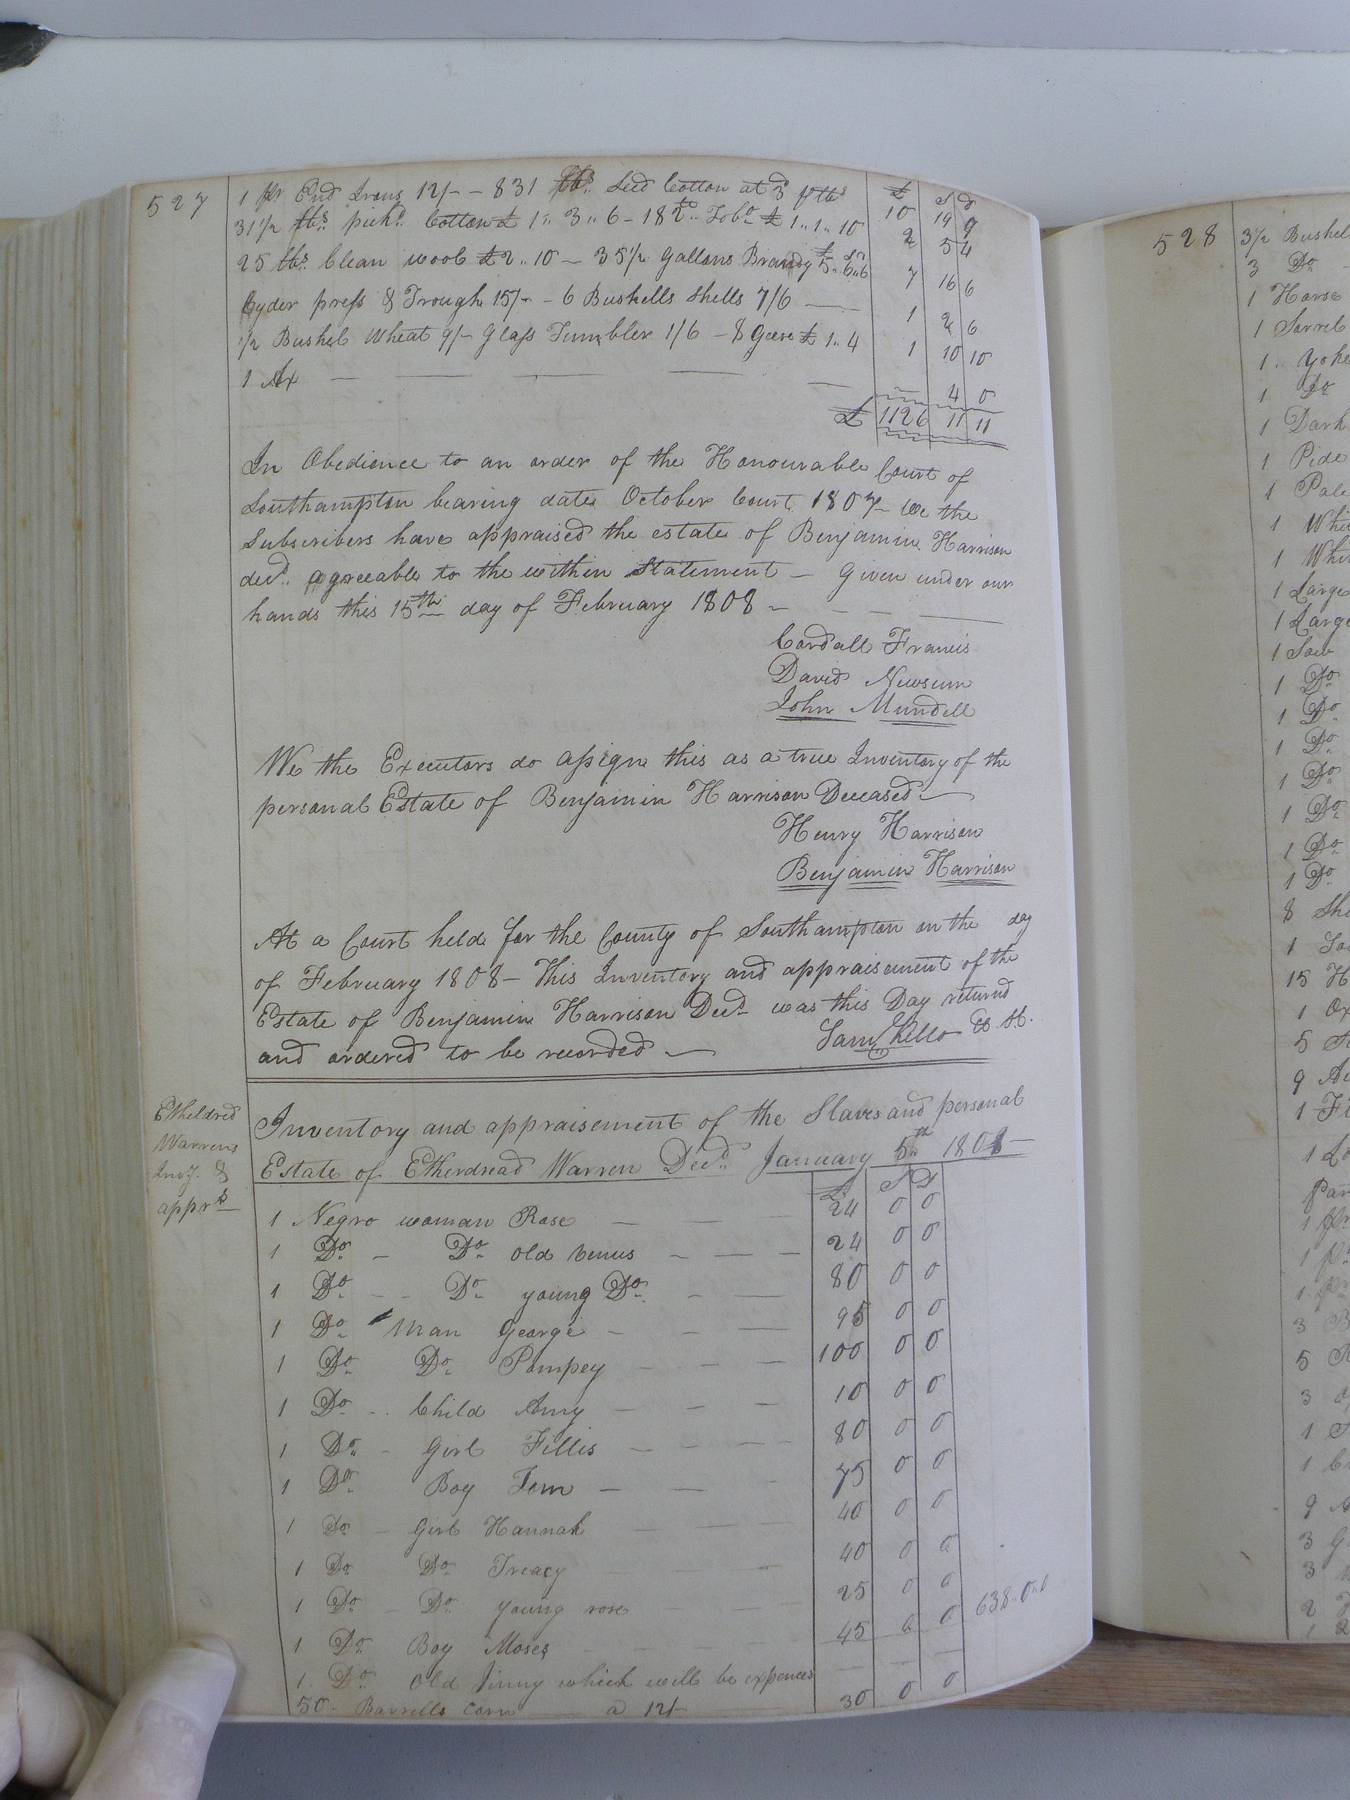 527
1 pr End Irons 12/- - 831 lbs. Seed Cotton at 3d pr lb £ 10 S 14 D 9
31 1/2 lbs. pickd. Cotton £ 1.. 3.. 6 - 18 lbs Tobo £ 1.. 1.. 10 2 5 4
25 lbs. Clean wool £2.. 10 - 35 1/2 Gallons Brandy £5.. 6.. 6 7 16 6
Cyder press & Trough 15/- - 6 Bushells Shells 7/6 — 1 2 6
1/2 Bushel Wheat 9/- Glass Tumbler 1/6 - 8 Geese £ 1.. 4 1 10 10
1 Ax — — — — — 4 0
£ 1126 11 11
In Obedience to an order of the Honourable Court of
Southampton bearing date October Court 1807 - We the
Subscribers have appraised the estate of Benjamin Harrison
decd. agreeable to the within Statement - Given under our
hands this 15th day of February 1808 -
Cordall Francis
David Newsum
John Mundell
We the Executors do assign this as a true Inventory of the
personal Estate of Benjamin Harrison Deceased —
Henry Harrison
Benjamin Harrison
At a Court held for the County of Southampton on the day
of February 1808 - This Inventory and appraisement of the
Estate of Benjamin Harrison Decd. was this Day returnd
and ordered to be recorded —
Saml Kello
Etheldred
Warrens
Invy. &
apprt
Inventory and appraisement of the Slaves and personal
Estate of Etherdread Warren Decd. January 5th 1808 —
£ S D
1 Negro woman Rose — — — 24 0 0
1 Do - Do old Venus - — — 24 0 0
1 Do - - Do young Do - — 80 0 0
1 Do Man George - - — 95 0 0
1 Do Do Pompey — — — 100 0 0
1 Do - Child Amy — — — 10 0 0
1 Do - Girl Fillis — - - — 80 0 0
1 Do Boy Tom — — - 75 0 0
1 Do - Girl Hannah — — — 40 0 0
1 Do Do Treacy — 40 0 0
1 Do - Do young rose — — 25 0 0
1 Do Boy Moses — 45 0 0 638..0..0
1 Do Old Jinny which will be expences — — —
50 Barrells Corn a 12/- 30 0 0
528
3 1/2 Bushel
3 Do -
1 Horse
1 Sorrel
1 Yoke
1 Do
1 Dark
1 Pide
1 Pale
1 Whi
1 Whi
1 Large
1 Large
1 Sow
1 Do
1 Do
1 Do
1 Do
1 Do
1 Do
1 Do
8 She
1
15 H
1 Ox
5
9
1
1
1 pr
1 pr
1
3 B
5
3
1
1
9
3 G
3
2
1